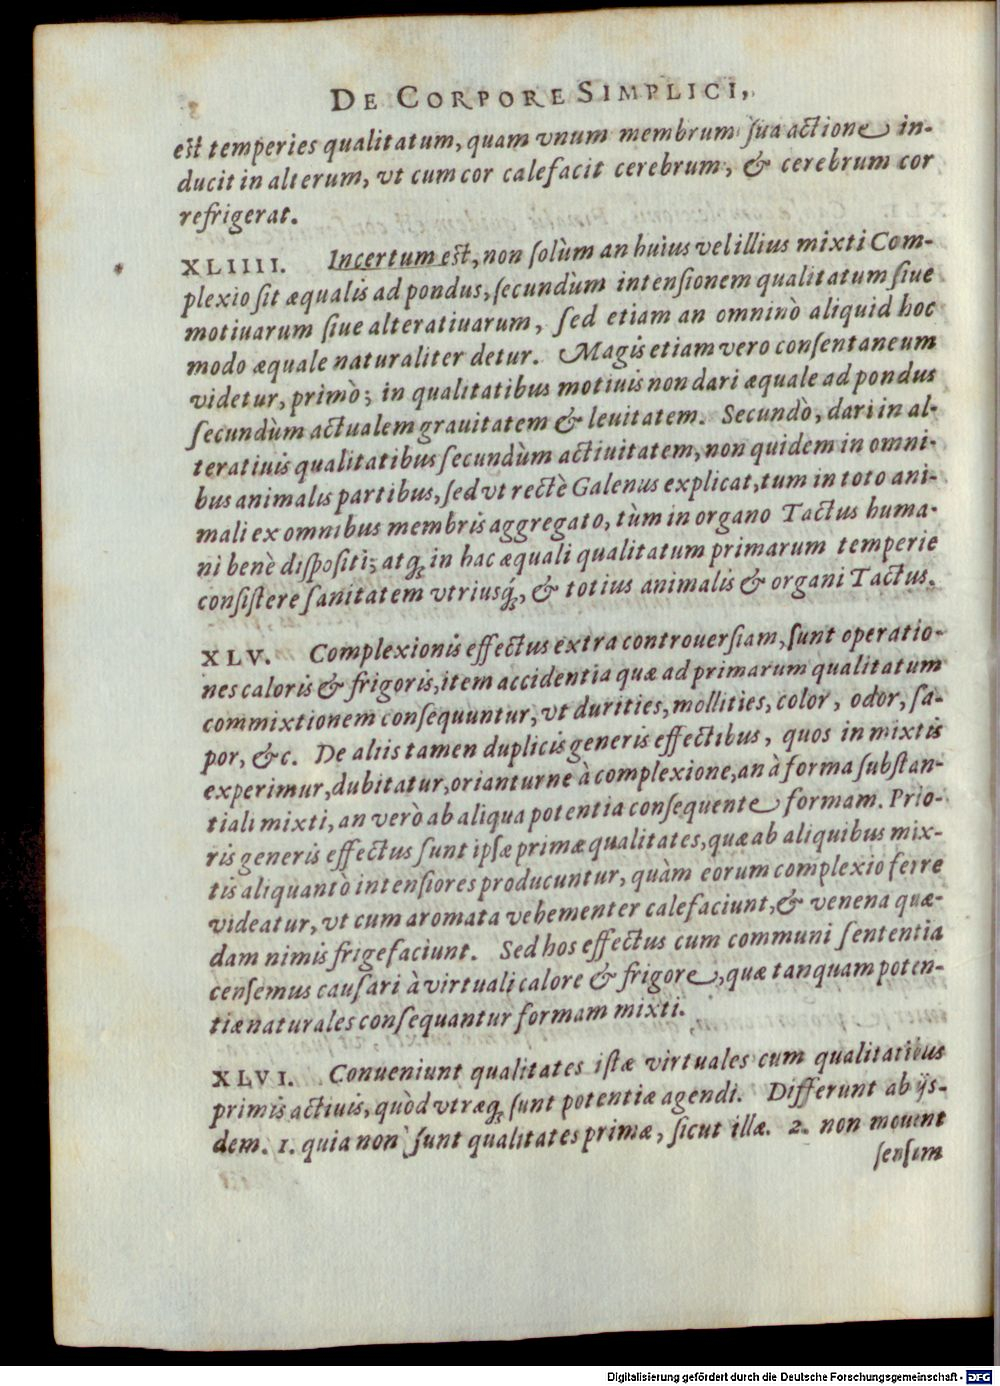 DE CORPORE SIMPLICI,
est temperies qualitatum, quam vnum membrum sua actione in-
ducit in alterum, vt cum cor calefacit cerebrum, & cerebrum cor
refrigerat.
XLIIII. Incertum est, non solùm an huius vel illius mixti Com-
plexio sit æqualis ad pondus, secundùm intensionem qualitatum siue
motiuarum siue alteratiuarum, sed etiam an omninò aliquid hoc
modo æquale naturaliter detur. Magis etiam vero consentaneum
videtur, primò; in qualitatibus motiuis non dari æquale ad pondus
secundùm actualem grauitatem & leuitatem. Secundò, dari in al-
teratiuis qualitatibus secundùm actiuitatem, non quidem in omni-
bus animalis partibus, sed vt rectè Galenus explicat, tum in toto ani-
mali ex omnibus membris aggregato, tùm in organo Tactus huma-
ni benè dispositi; atq́ꝫ in hac æquali qualitatum primarum temperie
consistere sanitatem vtriusq́ꝫ, & totius animalis & organi Tactus.
XLV. Complexionis effectus extra controuersiam, sunt operatio-
nes caloris & frigoris, item accidentia quæ ad primarum qualitatum
commixtionem consequuntur, vt durities, mollities, color, odor, sa-
por, &c. De aliis tamen duplicis generis effectibus, quos in mixtis
experimur, dubitatur, orianturne à complexione, an à forma substan-
tiali mixti, an verò ab aliqua potentia consequente formam. Prio-
ris generis effectus sunt ipsæ primæ qualitates, quæ ab aliquibus mix-
tis aliquantò intensiores producuntur, quàm eorum complexio ferre
videatur, vt cum aromata vehementer calefaciunt, & venena quæ-
dam nimis frigefaciunt. Sed hos effectus cum communi sententia
censemus causari à virtuali calore & frigore, quæ tanquam poten-
tiæ naturales consequantur formam mixti.
XLVI. Conueniunt qualitates istæ virtuales cum qualitatibus
primis actiuis, quòd vtræqꝫ sunt potentiæ agendi. Differunt ab ijs-
dem. 1. quia non sunt qualitates primæ, sicut illæ. 2. non mouent
sensum
Digitalisierung gefördert durch die Deutsche Forschungsgemeinschaft - DFG